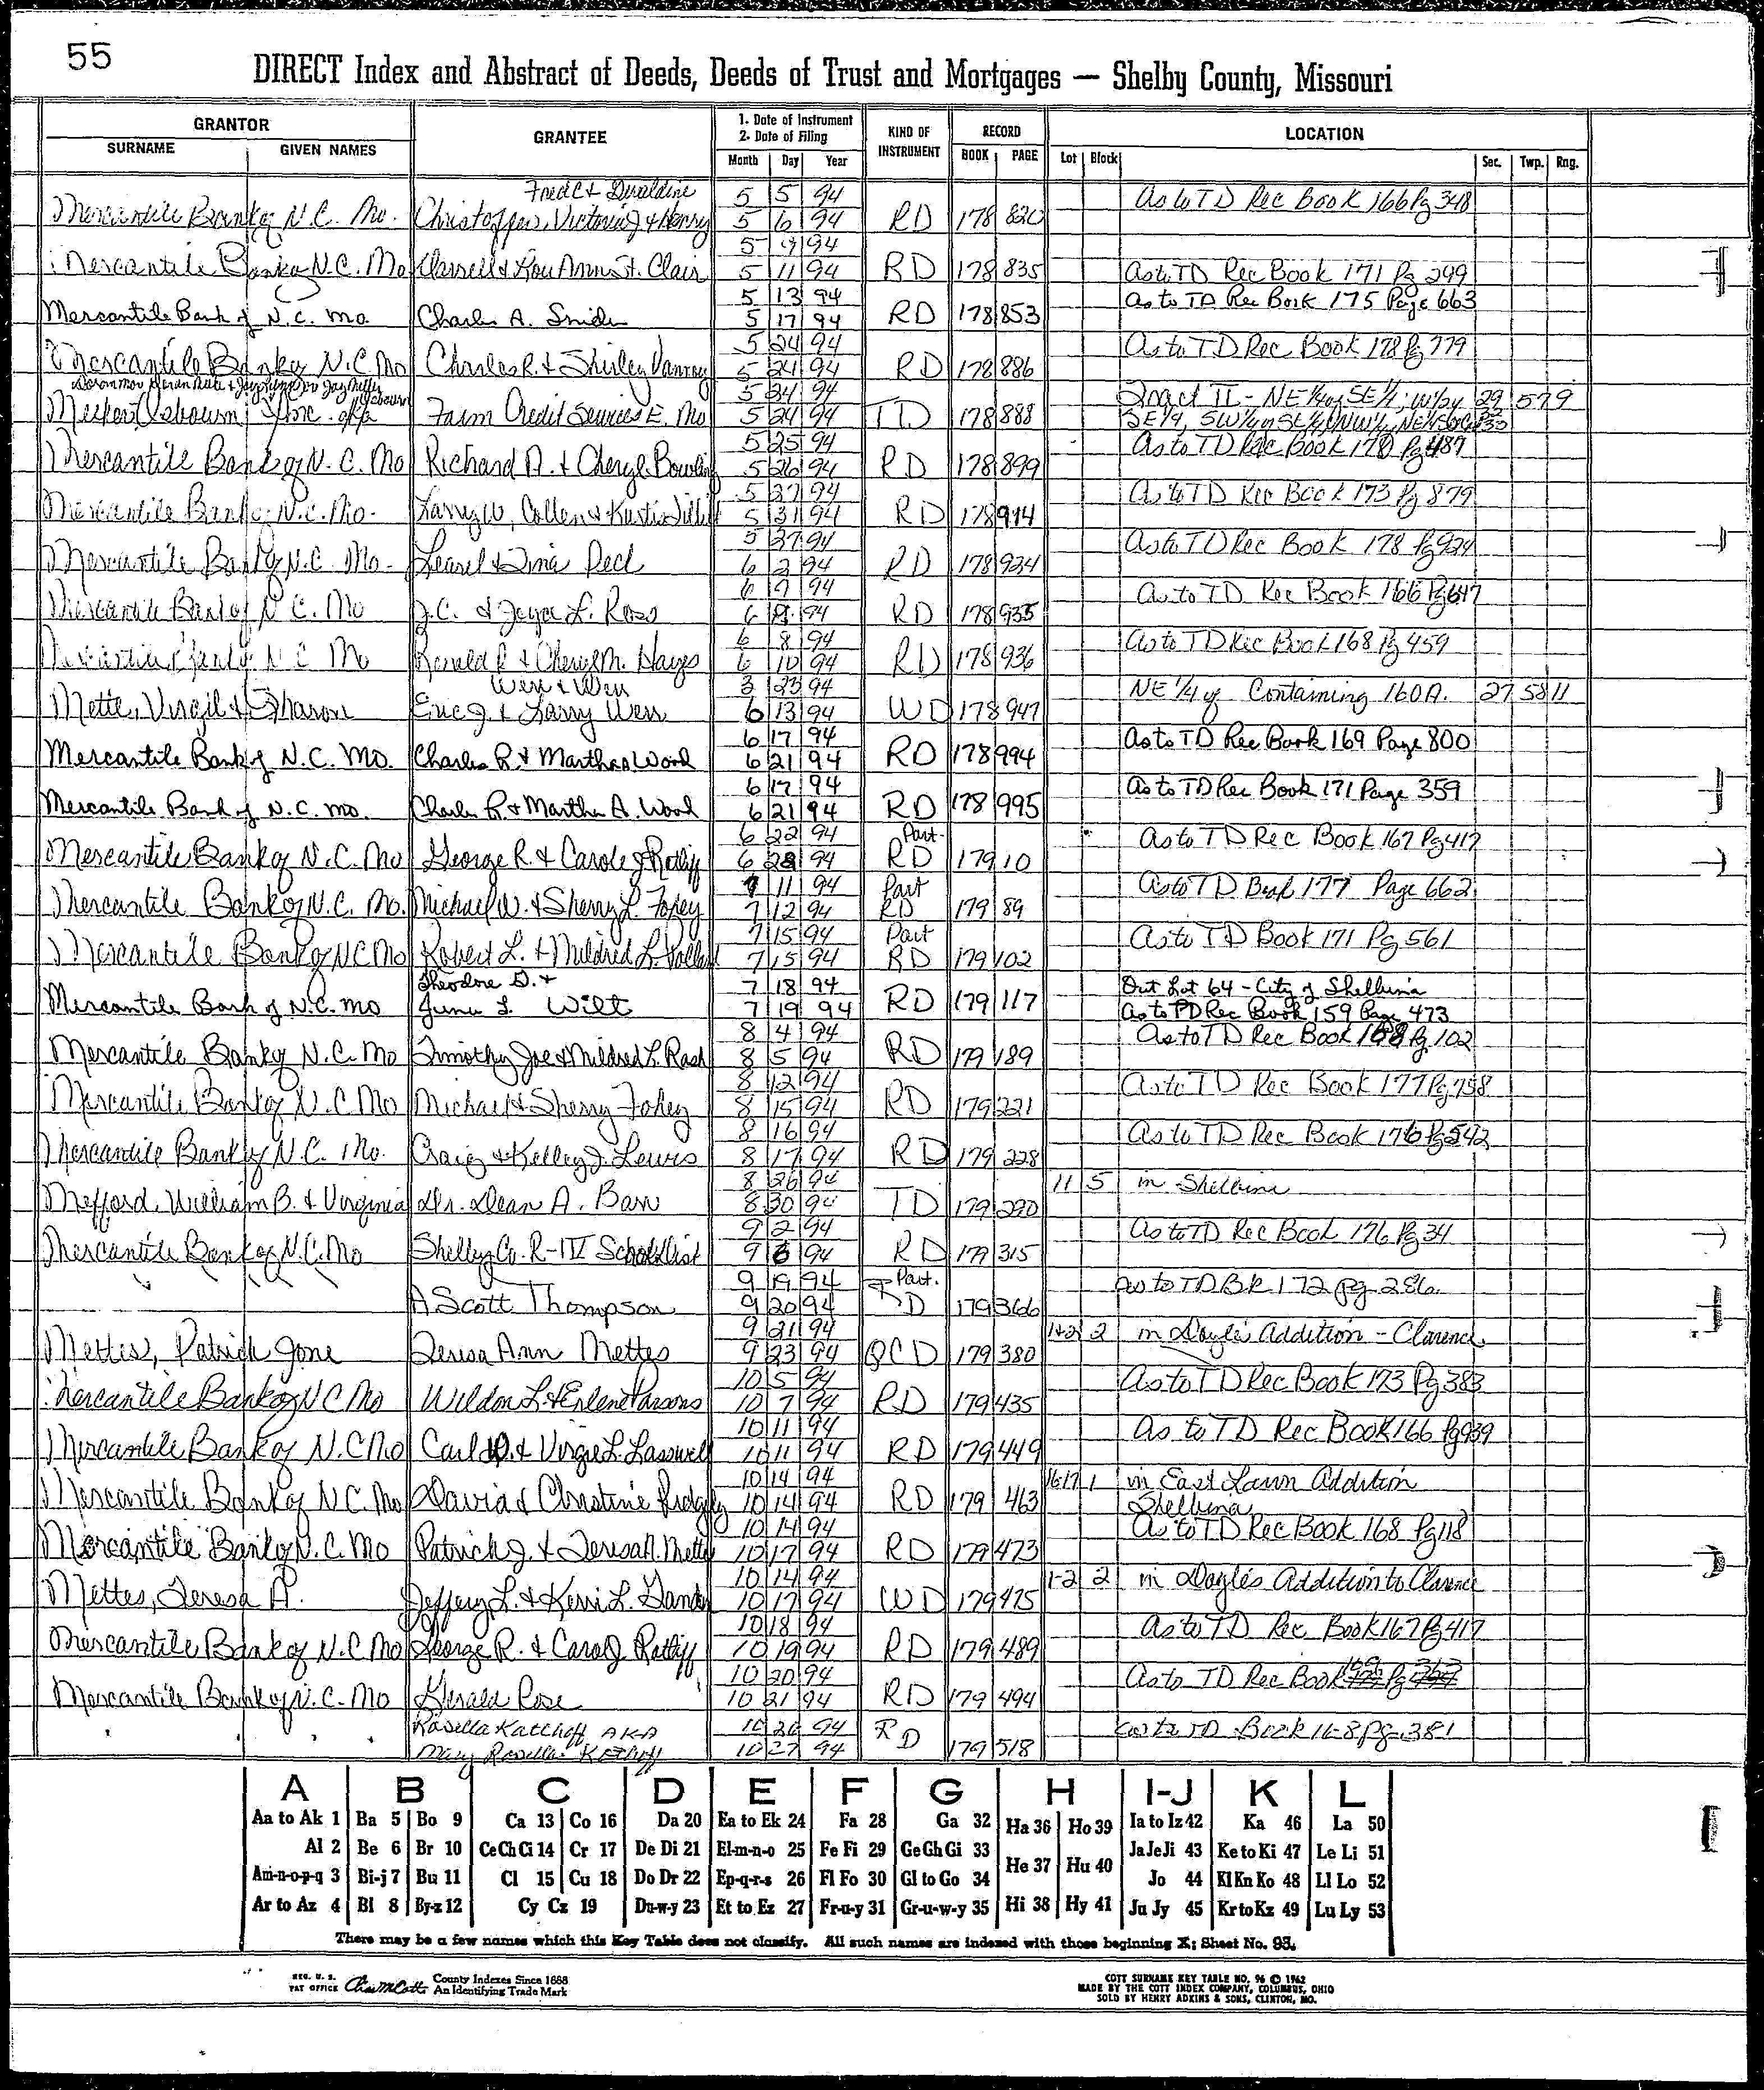 55
DIRECT Index and Abstract of Deeds, Deeds of Trust and Mortgages — Shelby County, Missouri
GRANTOR GRANTEE 1. Date of Instrument 2. Date of Filing KIND OF INSTRUMENT RECORD LOCATION
SURNAME GIVEN NAMES Month Day Year BOOK PAGE Lot Block Sec. Twp. Rng.
Fred C & Geraldine 5 5 94 As to TD Rec Book 166 Pg 348
Mercantile Bank of N.C. Mo. Victoria J & Henry 5 6 94 RD 178 820
5 9 94
Mercantile Bank of N.C. Mo & Lou Ann St. Clair 5 11 94 RD 178 835 As to TD Rec Book 171 Pg 299
5 13 94 As to TD Rec Book 175 Page 663
Mercantile Bank of N.C. Mo. Charles A. Snider 5 17 94 RD 178 853
5 24 94 As to TD Rec Book 178 Pg 779
Mercantile Bank of N.C. Mo Charles R. & Shirley 5 24 94 RD 178 886
5 24 94 Tract II - NE 1/4 of SE 1/4; 29 57 9
Osbourn Farm Credit Services E. Mo 5 24 94 TD 178 888 SE 1/4,
5 25 94 As to TD Rec Book 170 Pg 487
Mercantile Bank of N.C. Mo Richard D. & Cheryl Bowling 5 26 94 RD 178 899
5 27 94 As to TD Rec Book 173 Pg 879
Mercantile Bank of N.C. Mo. Larry W, Collen & Kurtis 5 31 94 RD 178 914
5 27 94 As to TD Rec Book 178 Pg 924
Mercantile Bank of N.C. Mo. & Tina 6 2 94 RD 178 924
6 7 94 As to TD Rec Book 166 Pg 647
Mercantile Bank of N.C. Mo J.C. & Joyce L. Ross 6 8 94 RD 178 935
6 8 94 As to TD Rec Book 168 Pg 459
Mercantile Bank of N.C. Mo Ronald R & Cheryl M. Hayes 6 10 94 RD 178 936
Werr & Werr 3 23 94 NE 1/4 of Containing 160 A. 27 58 11
Mette, Virgil & Sharon Eric J. & Larry Werr 6 13 94 WD 178 947
6 17 94 As to TD Rec Book 169 Page 800
Mercantile Bank of N.C. Mo. Charles R. & Martha Wood 6 21 94 RD 178 994
6 17 94 As to TD Rec Book 171 Page 359
Mercantile Bank of N.C. Mo. Charles R. & Martha A. Wood 6 21 94 RD 178 995
6 22 94 Part. As to TD Rec Book 167 Pg 417
Mercantile Bank of N.C. Mo George R. & Carole J Ratliff 6 28 94 RD 179 10
7 11 94 Part As to TD Book 177 Page 662
Mercantile Bank of N.C. Mo. Michael W. & Sherry L. Fohey 7 12 94 RD 179 89
7 15 94 Part As to TD Book 171 Pg 561
Mercantile Bank of N C Mo Robert L. & Mildred L. 7 15 94 RD 179 102
Theodore D. & 7 18 94 Out Lot 64 - City of Shelbina
Mercantile Bank of N.C. Mo June L. Wilt 7 19 94 RD 179 117 As to TD Rec Book 159 Page 473
8 4 94 As to TD Rec Book Pg 102
Mercantile Bank of N.C. Mo Timothy Joe & Mildred L. Rash 8 5 94 RD 179 189
8 12 94 As to TD Rec Book 177 Pg 758
Mercantile Bank of N.C. Mo Michael & Sherry Fohey 8 15 94 RD 179 221
8 16 94 As to TD Rec Book 176 Pg 542
Mercantile Bank of N.C. Mo. Craig & Kelley J. Lewis 8 17 94 RD 179 228
8 26 94 11 5 in Shelbina
Mefford, William B. & Virginia Dr. Dean A. Barr 8 30 94 TD 179 290
9 2 94 As to TD Rec Book 176 Pg 34
Mercantile Bank of N.C. Mo Shelby Co. R-IV School Dist 9 6 94 RD 179 315
9 19 94 Part. As to TD BK 172 pg 286.
A Scott Thompson 9 20 94 RD 179 366
9 21 94 1+2 2 in Doyle's Addition - Clarence
Mettes, Patrick Gone Teresa Ann Mettes 9 23 94 QCD 179 380
10 5 94 As to TD Rec Book 173 Pg 383
Mercantile Bank of N C Mo Weldon L. & Erlene Parsons 10 7 94 RD 179 435
10 11 94 As to TD Rec Book 166 Pg 939
Mercantile Bank of N.C Mo Carl D. & Virgie L. Lasswell 10 11 94 RD 179 449
10 14 94 16 17 1 in East Lawn Addition
Mercantile Bank of N.C. Mo David & Christine Ridgely 10 14 94 RD 179 463 Shelbina
10 14 94 As to TD Rec Book 168 Pg 118
Mercantile Bank of N.C. Mo Patrick J. & Teresa A. Mettes 10 17 94 RD 179 473
10 14 94 1-2 2 in Doyle's Addition to Clarence
Mettes, Teresa A. Jeffery L. & Kerri L. 10 17 94 WD 179 475
10 18 94 As to TD Rec Book 167 Pg 417
Mercantile Bank of N.C Mo George R. & Carol J. Ratliff 10 19 94 RD 179 489
10 20 94 As to TD Rec Book Pg
Mercantile Bank of N.C. Mo Gerald Rose 10 21 94 RD 179 494
Rosella Katthoff AKA 10 26 94 RD As to TD Book 168 pg 381
Mary Rosella Katthoff 10 27 94 179 518
A B C D E F G H I-J K L
Aa to Ak 1 Ba 5 Bo 9 Ca 13 Co 16 Da 20 Ea to Ek 24 Fa 28 Ga 32 Ha 36 Ho 39 Ia to Iz 42 Ka 46 La 50
Al 2 Be 6 Br 10 Ce Ch Ci 14 Cr 17 De Di 21 El-m-n-o 25 Fe Fi 29 Ge Gh Gi 33 He 37 Hu 40 Ja Je Ji 43 Ke to Ki 47 Le Li 51
Am-n-o-p-q 3 Bi-j 7 Bu 11 Cl 15 Cu 18 Do Dr 22 Ep-q-r-s 26 Fl Fo 30 Gl to Go 34 Jo 44 Kl Kn Ko 48 Ll Lo 52
Ar to Az 4 Bl 8 By-z 12 Cy Cz 19 Du-w-y 23 Et to Ez 27 Fr-u-y 31 Gr-u-w-y 35 Hi 38 Hy 41 Ju Jy 45 Kr to Kz 49 Lu Ly 53
There may be a few names which this Key Table does not classify. All such names are indexed with those beginning X; Sheet No. 93.
REG. U. S. PAT OFFICE County Indexes Since 1888 An Identifying Trade Mark
COTT SURNAME KEY TABLE NO. 96 © 1962
MADE BY THE COTT INDEX COMPANY, COLUMBUS, OHIO
SOLD BY HENRY ADKINS & SONS, CLINTON, MO.